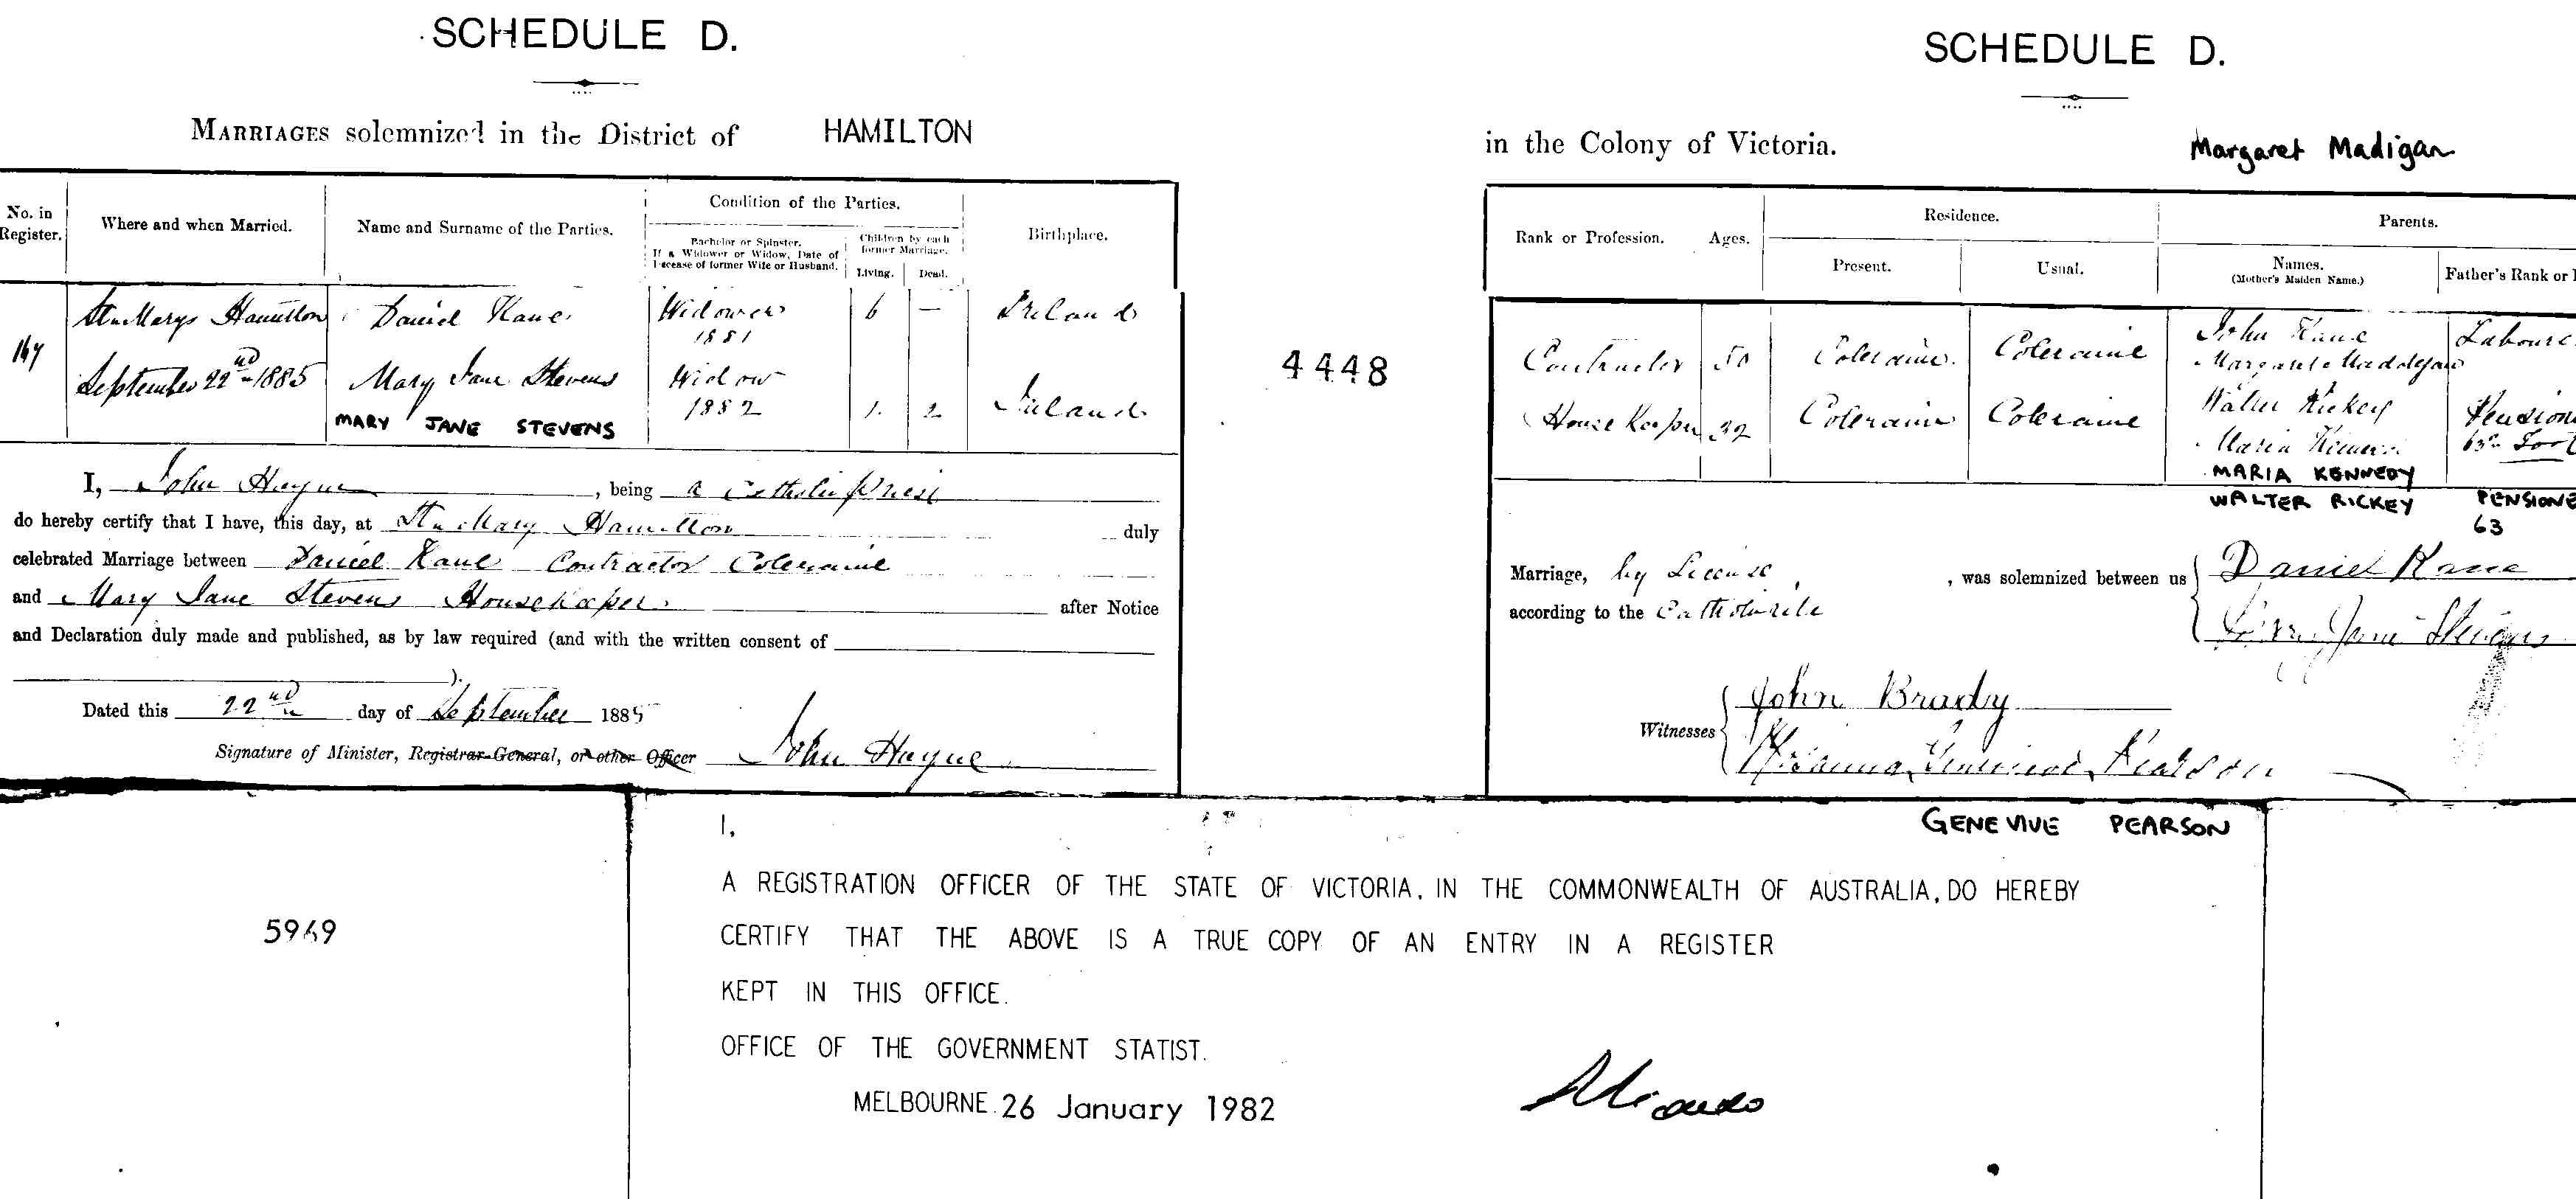 SCHEDULE D.
MARRIAGES solemnized in the District of HAMILTON
No. in Register.
Where and when Married.
Name and Surname of the Parties.
Condition of the Parties.
Bachelor or Spinster.
If a Widower or Widow, Date of
Decease of former Wife or Husband.
Children by each
former Marriage.
Living.
Dead.
Birthplace.
167
St. Marys Hamilton
September 22nd 1885
Daniel Kane
Widower
1881
6
—
Ireland
Mary Jane Stevens
Widow
1882
1
2
Ireland
MARY JANE STEVENS
I, John Hayne, being a Catholic Priest
do hereby certify that I have, this day, at St. Mary Hamilton duly
celebrated Marriage between Daniel Kane Contractor Coleraine
and Mary Jane Stevens Housekeeper after Notice
and Declaration duly made and published, as by law required (and with the written consent of
).
Dated this 22nd day of September 1885
Signature of Minister, Registrar-General, or other Officer John Hayne
4448
SCHEDULE D.
in the Colony of Victoria.
Margaret Madigan
Rank or Profession.
Ages.
Residence.
Present.
Usual.
Parents.
Names.
(Mother's Maiden Name.)
Father's Rank or
Contractor
50
Coleraine
Coleraine
John Kane
Labourer
House Keeper
32
Coleraine
Coleraine
Walter Rickey
Maria
63rd Foot
MARIA KENNEDY
WALTER RICKEY
PENSIONE
63
Marriage, by License, was solemnized between us
according to the Catholic rite
Daniel Kane
Jane Stevens
Witnesses
John Brady
Pearson
GENEVIVE PEARSON
5969
I,
A REGISTRATION OFFICER OF THE STATE OF VICTORIA, IN THE COMMONWEALTH OF AUSTRALIA, DO HEREBY
CERTIFY THAT THE ABOVE IS A TRUE COPY OF AN ENTRY IN A REGISTER
KEPT IN THIS OFFICE.
OFFICE OF THE GOVERNMENT STATIST.
MELBOURNE. 26 January 1982